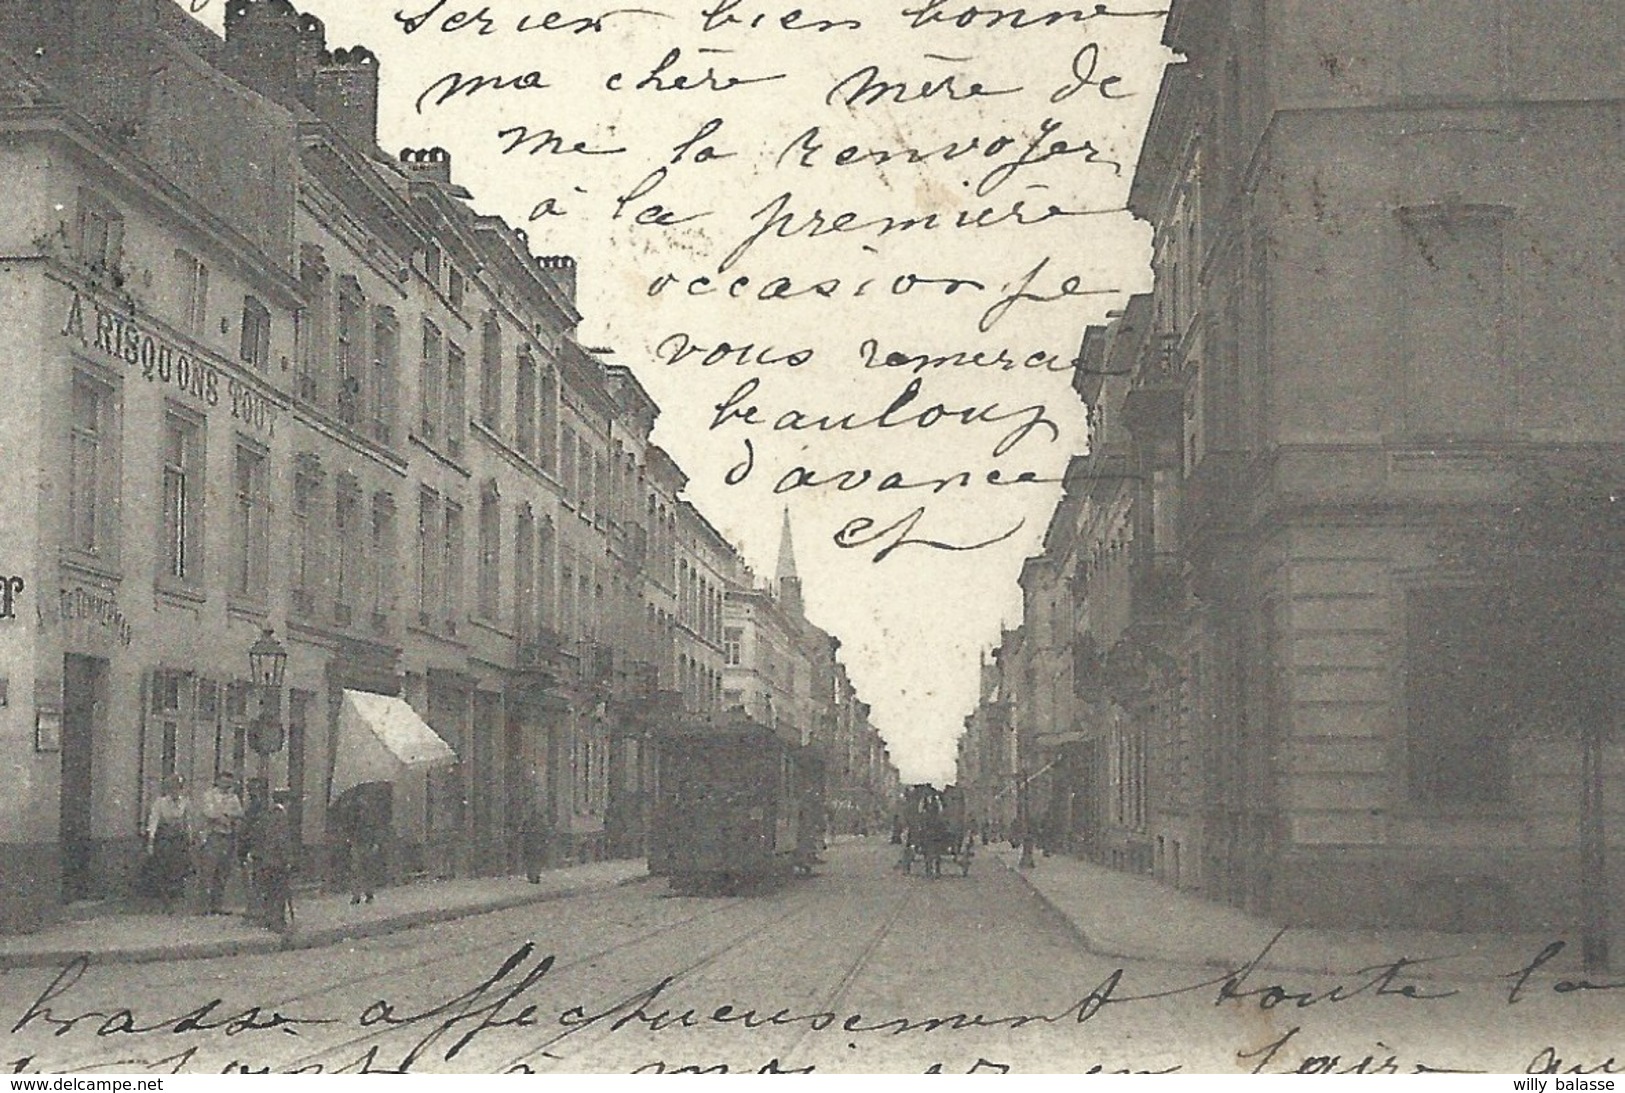 seriez bien bonne
ma chère mère de
me la renvoyer
à la première
occasion je
vous remercie
beaucoup
d'avance
et
A RISQUONS TOUT
brasse affectueusement toute la
à moi en faire
www.delcampe.net
willy balasse